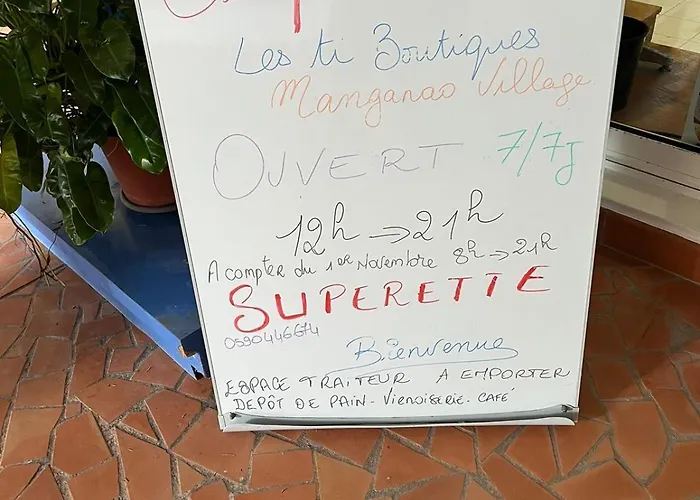 Les ti Boutiques
Manganao Village
OUVERT 7/7j
12h → 21h
A compter du 1er Novembre 8h → 21h
SUPERETTE
0590446674
Bienvenue
ESPACE TRAITEUR A EMPORTER
DEPÔT DE PAIN - VIENOISERIE. CAFÉ